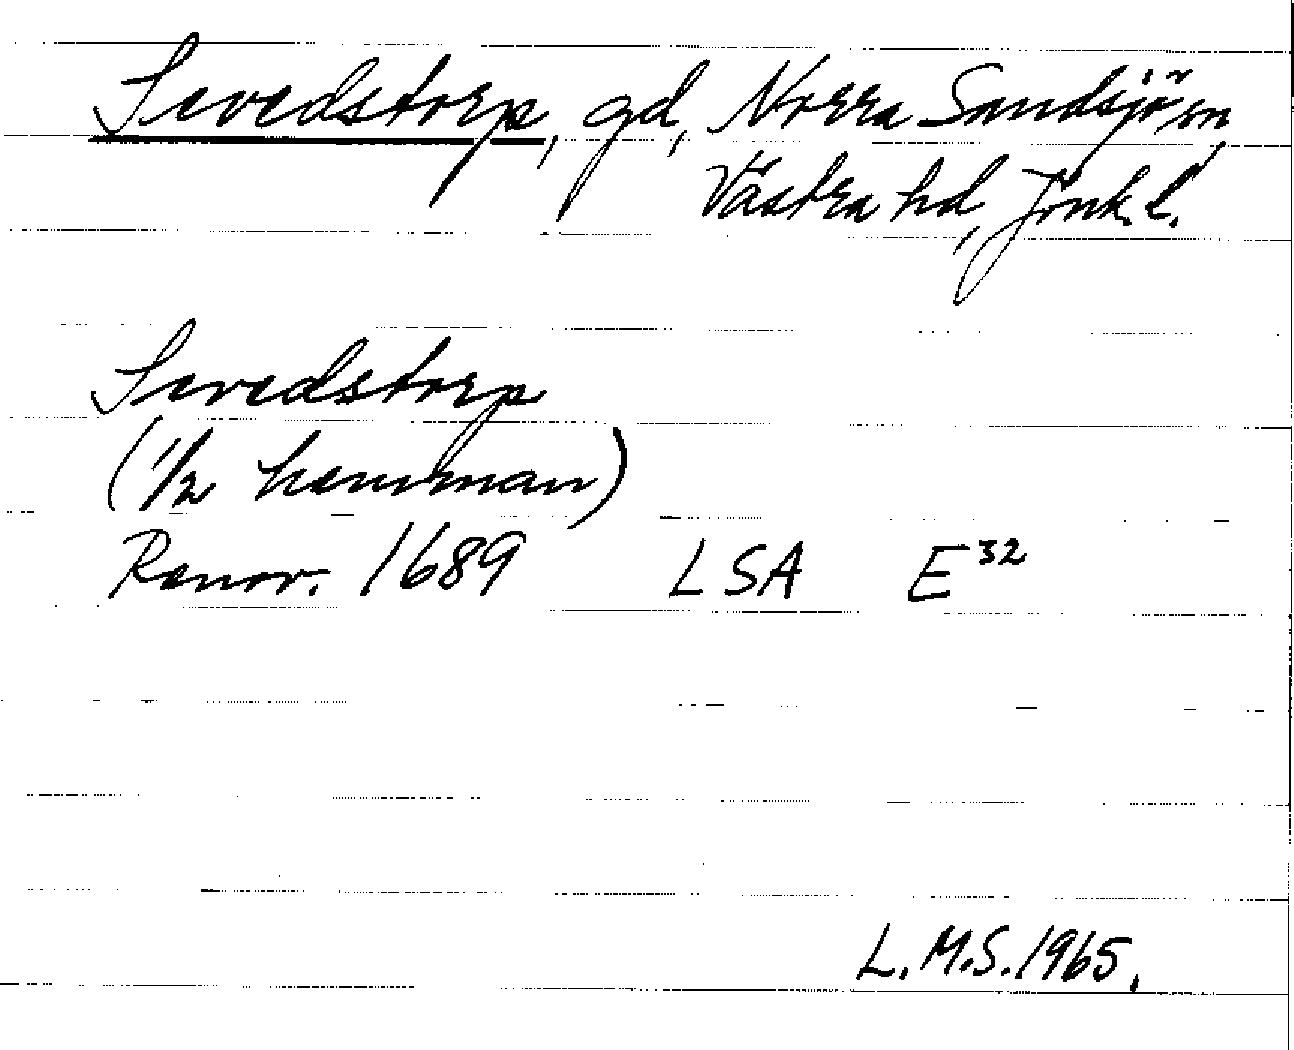 Sevedstorp, gd, Norra Sandsjö sn,
Västra hd, Jönk. l.
Sevedstorp
(1/2 hemman)
Renov. 1689 LSA E32
L. M. S. 1965.